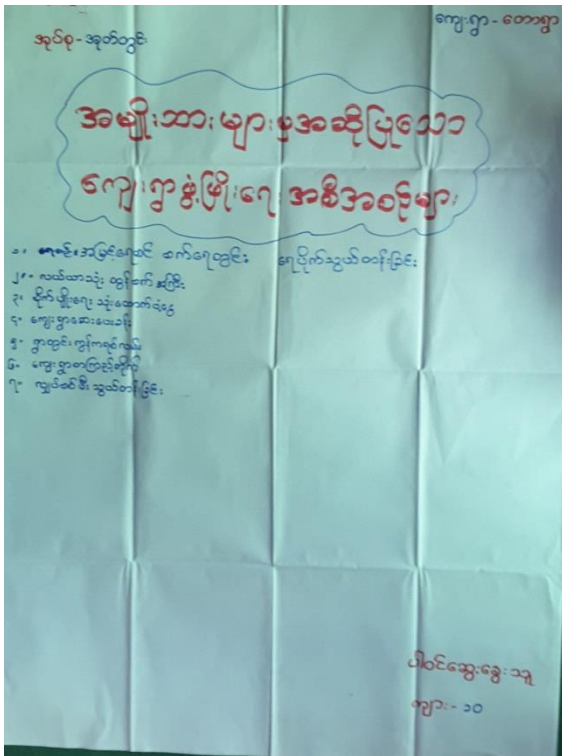 ကျေးရွာ - တောရွာ
အုပ်စု - အုတ်တွင်း
အမျိုးသားများမှအဆိုပြုသော
ကျေးရွာဖွံ့ဖြိုးရေးအစီအစဉ်များ
၁။ အမြင့်ရေစင် စက်ရေတွင်း ရေပိုက်သွယ်တန်းခြင်း
၂။ လယ်ယာသုံး ထွန်စက် အကြီး
၃။ စိုက်ပျိုးရေး သုံးထောက်ပံ့ငွေ
၄။ ကျေးရွာဆေးပေးခန်း
၅။ ရွာတွင်းကွန်ကရစ်လမ်း
၆။ ကျေးရွာစာကြည့်တိုက်
၇။ လျှပ်စစ်မီးသွယ်တန်းခြင်း
ပါဝင်ဆွေးနွေးသူ
ကျား - ၁၀